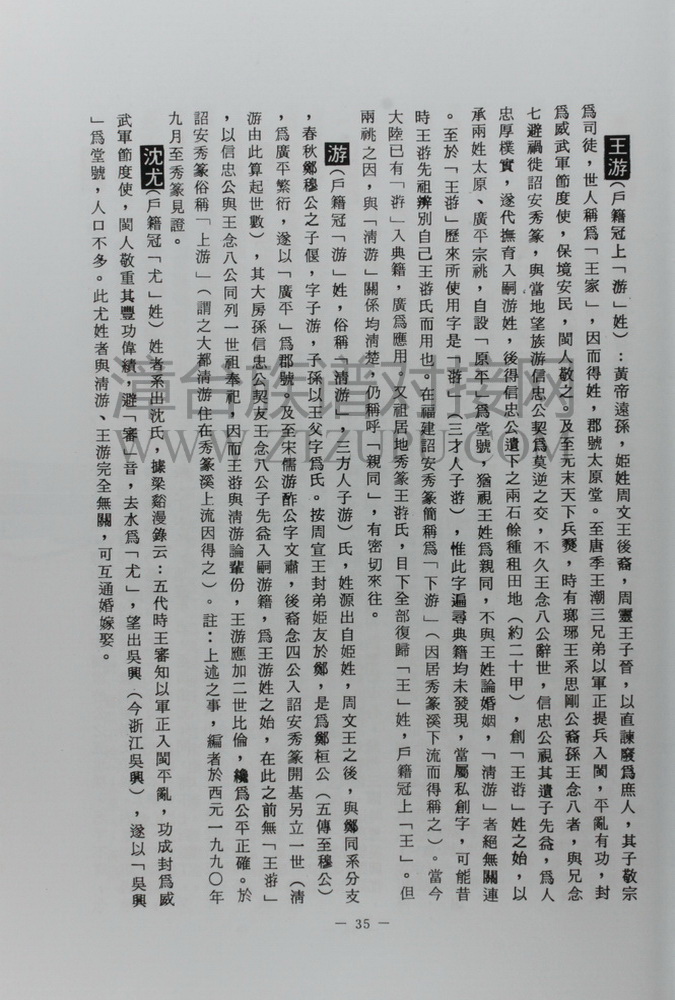 王游(戶籍冠上「游」姓):黃帝遠孫,姬姓周文王後裔,周靈王子晉,以直諫廢爲庶人,其子敬宗
爲司徒,世人稱爲「王家」,因而得姓,郡號太原堂。至唐季王潮三兄弟以軍正提兵入閩,平亂有功,封
爲威武軍節度使,保境安民,閩人敬之。及至元末天下兵燹,時有瑯琊王系思剛公裔孫王念八者,與兄念
七避禍徙詔安秀篆,與當地望族游信忠公契爲莫逆之交,不久王念八公辭世,信忠公視其遺子先益,爲人
忠厚樸實,遂代撫育入嗣游姓,後得信忠公遺下之兩石餘種租田地(約二十甲),創「王游」姓之始,以
承兩姓太原、廣平宗祧,自設「原平」爲堂號,猶視王姓爲親同,不與王姓論婚姻,「清游」者絕無關連
。至於「王游」歷來所使用字是「游」(三才人子游),惟此字遍尋典籍均未發現,當屬私創字,可能昔
時王游先祖辨別自己王游氏而用也。在福建詔安秀篆簡稱爲「下游」(因居秀篆溪下流而得稱之)。當今
大陸已有「游」入典籍,廣爲應用。又祖居地秀篆王游氏,目下全部復歸「王」姓,戶籍冠上「王」。但
兩祧之因,與「清游」關係均清楚,仍稱呼「親同」,有密切來往。
游(戶籍冠「游」姓,俗稱「清游」,三方人子游)氏,姓源出自姬姓,周文王之後,與鄭同系分支
,春秋鄭穆公之子偃,字子游,子孫以王父字爲氏。按周宣王封弟姬友於鄭,是爲鄭桓公(五傳至穆公)
,爲廣平繁衍,遂以「廣平」爲郡號。及至宋儒游酢公字文肅,後裔念四公入詔安秀篆開基另立一世(清
游由此算起世數),其大房孫信忠公契友王念八公子先益入嗣游籍,爲王游姓之始,在此之前無「王游」
,以信忠公與王念八公同列一世祖奉祀,因而王游與清游論輩份,王游應加二世比倫,纔爲公平正確。於
詔安秀篆俗稱「上游」(謂之大都清游住在秀篆溪上流因得之)。註:上述之事,編者於西元一九九〇年
九月至秀篆見證。
沈尤(戶籍冠「尤」姓)姓者系出沈氏,據梁谿漫錄云:五代時王審知以軍正入閩平亂,功成封爲威
武軍節度使,閩人敬重其豐功偉績,避「審」音,去水爲「尤」,望出吳興(今浙江吳興),遂以「吳興
」爲堂號,人口不多。此尤姓者與清游、王游完全無關,可互通婚嫁娶。
— 35 —
漳台族谱对接网
WWW.ZTZUPU.COM